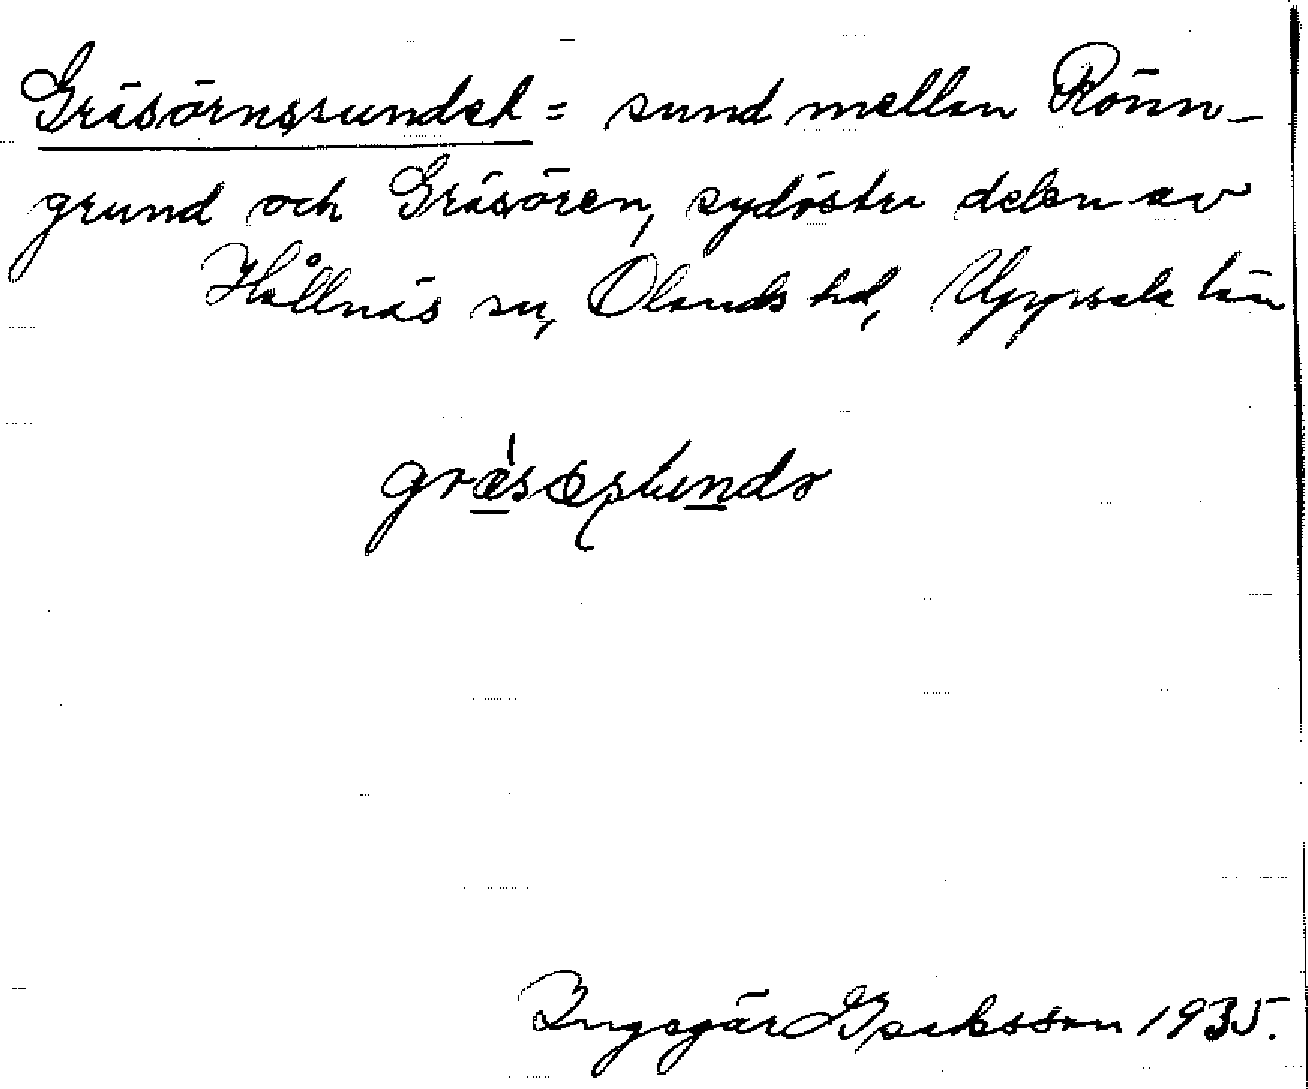 Gräsörnssundet = sund mellan Rönn-
grund och Gräsören, sydöstra delen av
Hållnäs sn, Olands hd, Uppsala län
Ingegär Isaksson 1935.